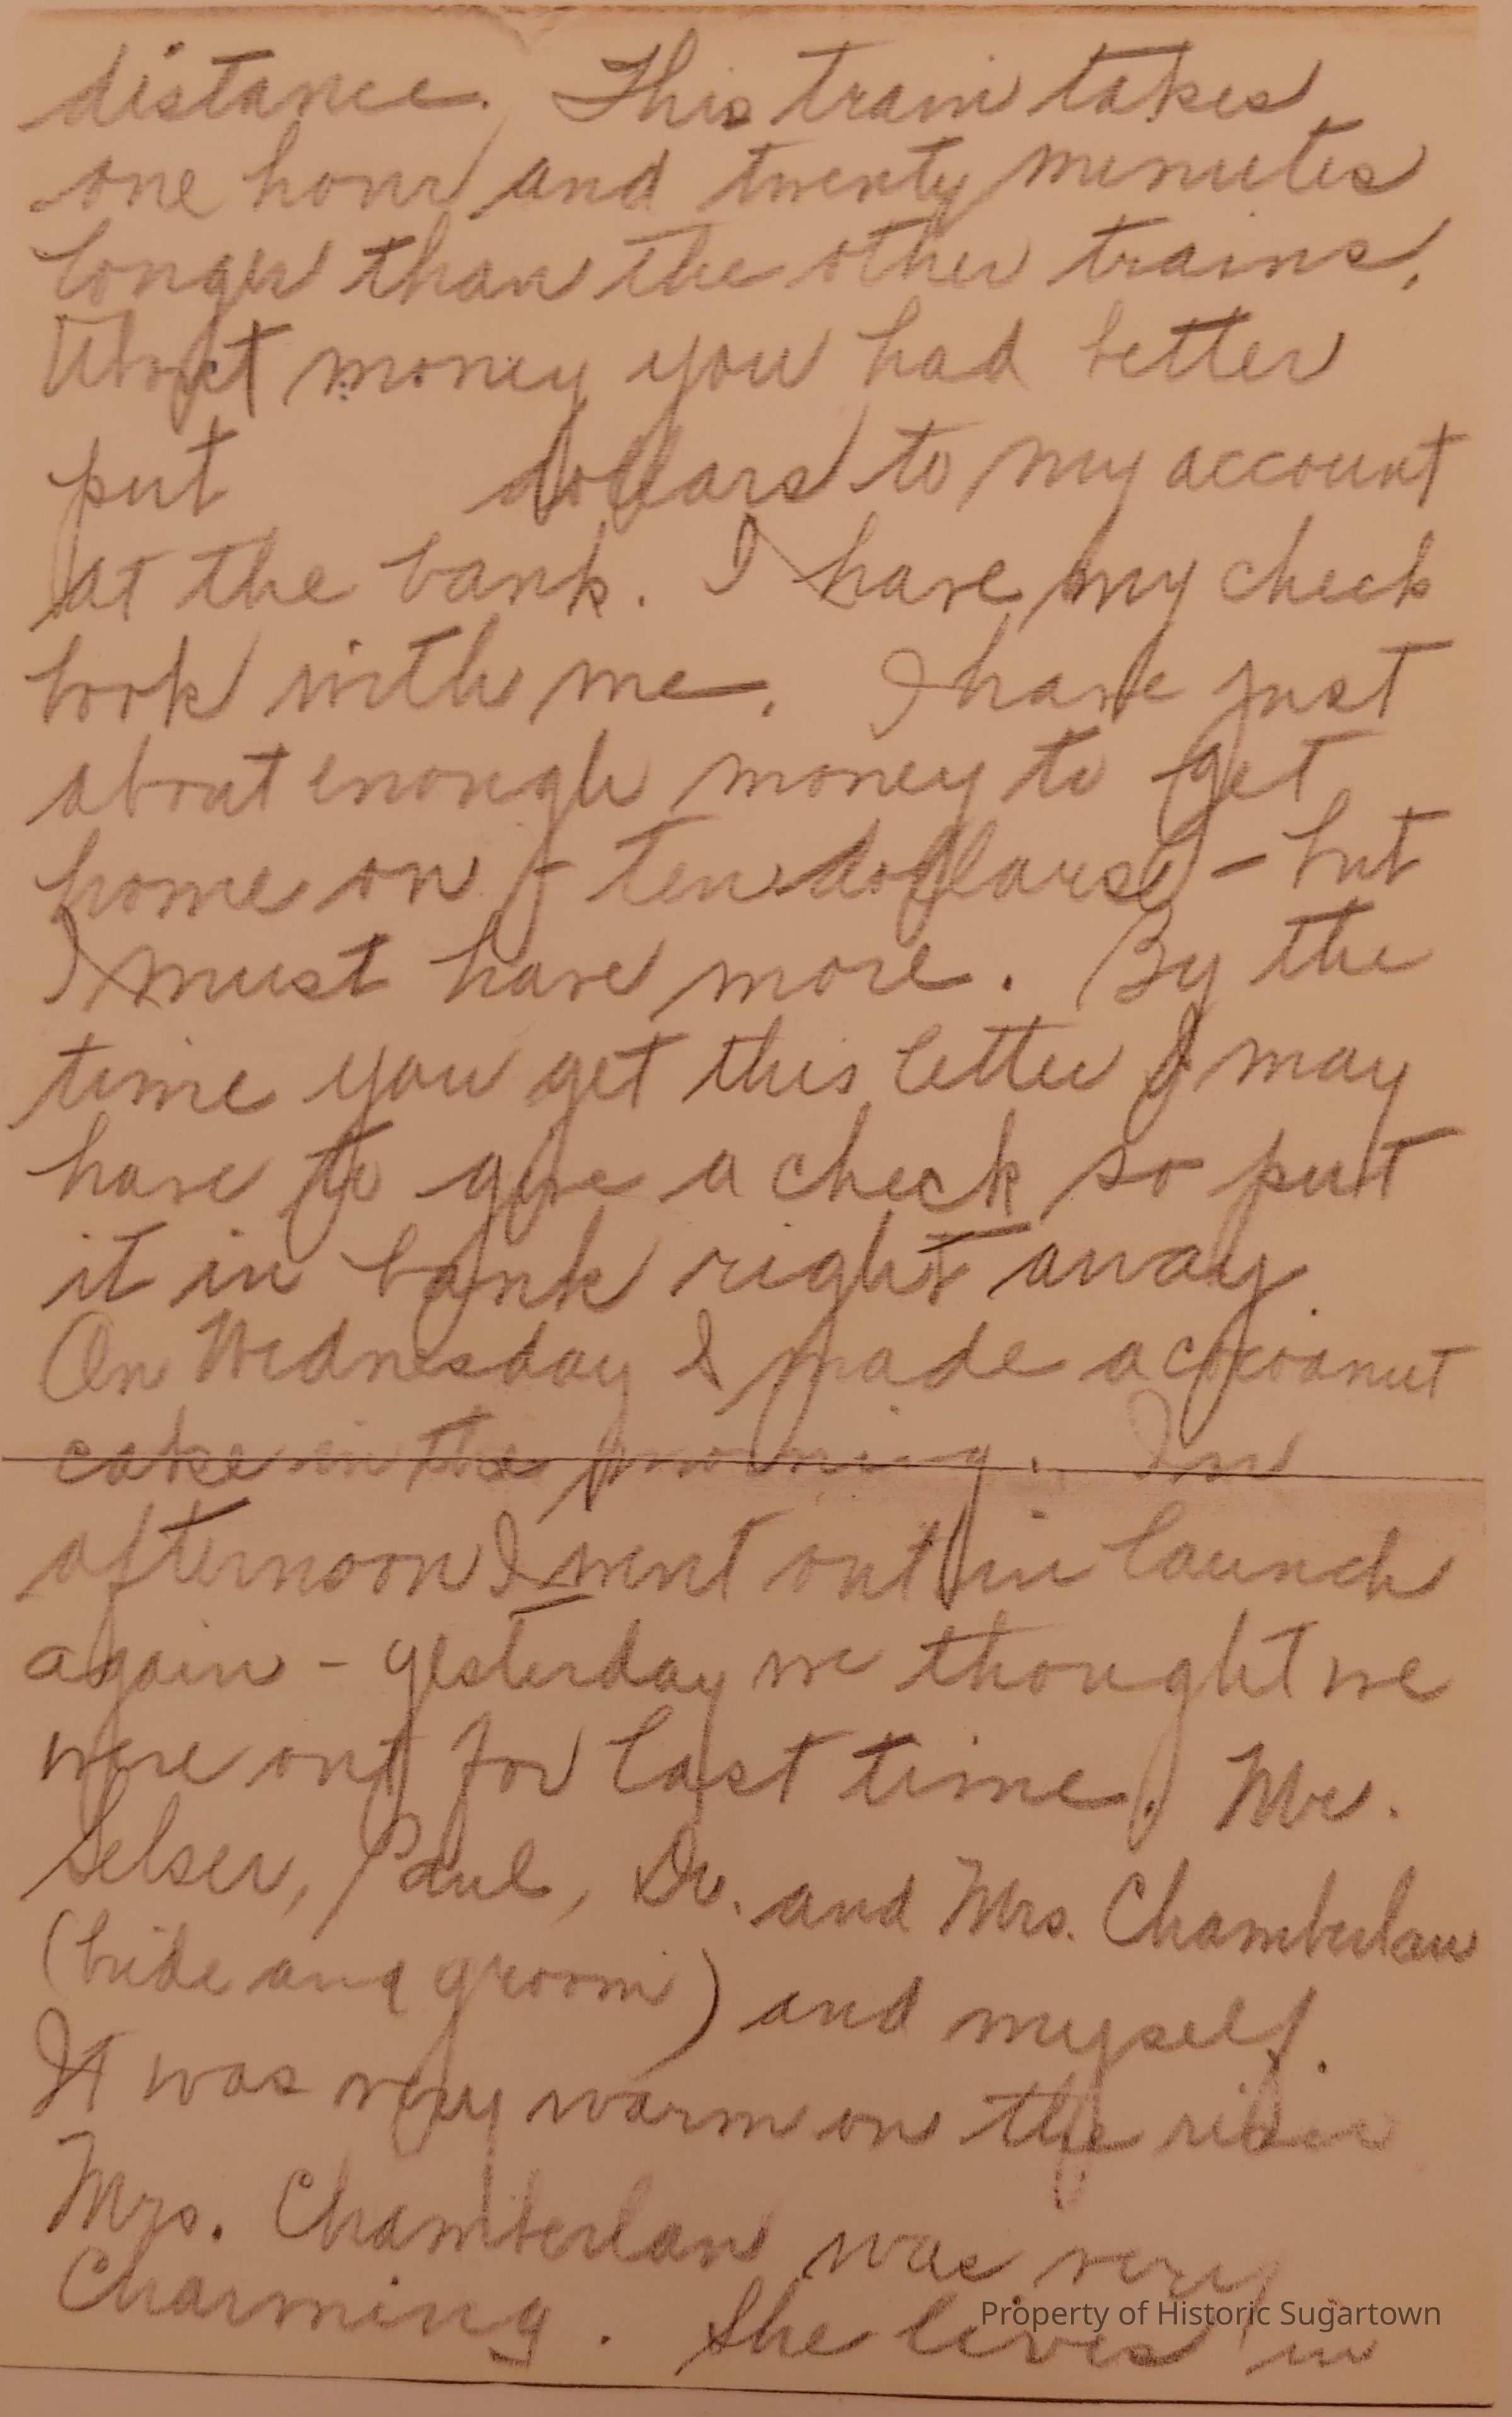 distance. This train takes
one hour and twenty minutes
longer than the other trains.
About money you had better
put dollars to my account
at the bank. I have my check
book with me. I have just
about enough money to get
home on - ten dollars - but
I must have more. By the
time you get this letter I may
have to give a check so put
it in bank right away.
On Wednesday I made a cocoanut
cake in the morning. In
afternoon I went out in launch
again - yesterday we thought we
were out for last time. Mr.
Selser, Paul, Dr. and Mrs. Chamberlan
(bride and groom) and myself.
It was very warm on the river
Mrs. Chamberlan was very
Charming. She lives in
Property of Historic Sugartown